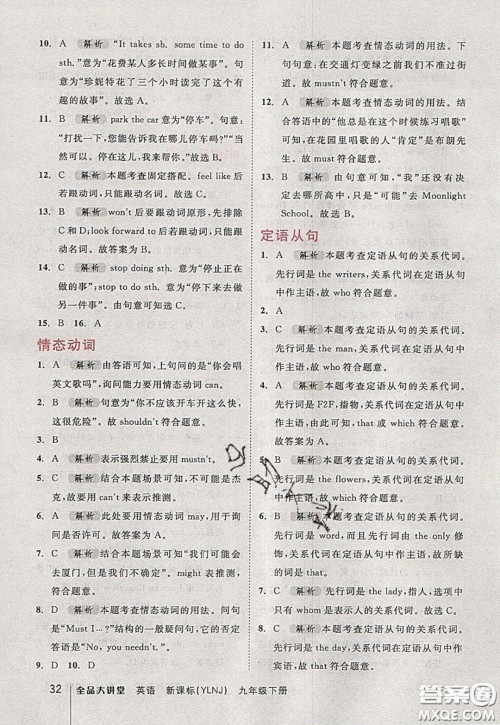 10. A 解析 "It takes sb. some time to do
sth."意为"花费某人多长时间做某事"。句
意为"珍妮特花了三个小时读完了这个有
趣的故事"。故选 A。
11. B 解析 park the car 意为"停车"。句意:
"打扰一下,您能告诉我在哪儿停车吗?"
故选 B。
12. C 解析 本题考查固定搭配。feel like 后
若跟动词,只能跟动名词。故选 C。
13. B 解析 won't 后要跟动词原形,先排除
C 和 D,look forward to 后若跟动词,只能
跟动名词。故答案为 B。
14. C 解析 stop doing sth. 意为"停止正在
做的事",stop to do sth. 意为"停下来去
做某事"。由句意可知选 C。
15. B 16. A
情态动词
1. A 解析 由答语可知,上句问的是"你会唱
英文歌吗?",询问能力要用情态动词 can。
2. A 解析 句意为"你不应该开车开这么快,
这很危险"。故 shouldn't 符合题意。
3. B
4. A 解析 表示强烈禁止要用 mustn't。
5. C 解析 结合本题场景可知不可能是杰
克,故此处用 can't 来表示推测。
6. C 解析 此处要用情态动词 may,用于询
问是否许可。故答案为 C。
7. C 解析 结合本题场景可知"我们可能会
去厦门,但是我们还没有定"。might 表推测,
可能性较小。
8. D 解析 本题考查情态动词的用法。问句
是"Must I…?"结构的一般疑问句,否定回
答是"No, you needn't."。
9. D 10. D
11. C 解析 本题考查情态动词的用法。
句意:在交通灯变绿之前我们一定不能过
马路。故 mustn't 符合题意。
12. A 解析 本题考查情态动词的用法。
结合答语中的"他总是在这个时候练习唱歌"可
知,在花园里唱歌的人"肯定"是布朗先
生。故 must 符合题意。
13. B 解析 由句意可知,"我"还没有决定
去哪所高中,只是"可能"去 Moonlight
School。故 may 符合题意。
定语从句
1. A 解析 本题考查定语从句的关系代词。
先行词是 the writers,关系代词在定语从句
中作主语,故 who 符合题意。
2. C
3. C 解析 本题考查定语从句的关系代词。
先行词是 the man,关系代词在定语从句中
作主语。故 who 符合题意。
4. A 解析 本题考查定语从句的关系代词。
先行词是 F2F,指物,关系代词在定语从
句中作主语。由此可知,that 或 which 符合题
意。故答案为 A。
5. D 解析 本题考查定语从句的关系代词。
先行词是 the flowers,关系代词在定语从句
中作主语,故 which 符合题意。
6. B 解析 本题考查定语从句的关系代词。
先行词是 word,而且由 the only 修饰,
故缺的词是 that。故答案为 B。
7. C 解析 先行词是 the lady,指人,选项
中只有 who 符合题意。
8. B 解析 本题考查定语从句的关系代词。
32 全品大讲堂 英语 新课标(YLNJ) 九年级下册